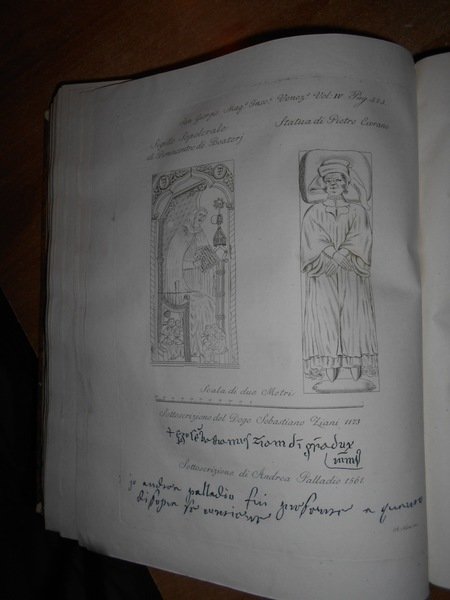 San Giorgio Mag.e Insc.i Venez.e Vol. IV Pag. 453.
Sigillo Sepolcrale
di Bonincontro di Boaterj
Statua di Pietro Civrano
Scala di due Metri
Sottoscrizione del Doge Sebastiano Ziani 1173
Sottoscrizione di Andrea Palladio 1561.
jo andrea palladio fui presente a quanto
di sopra se contiene